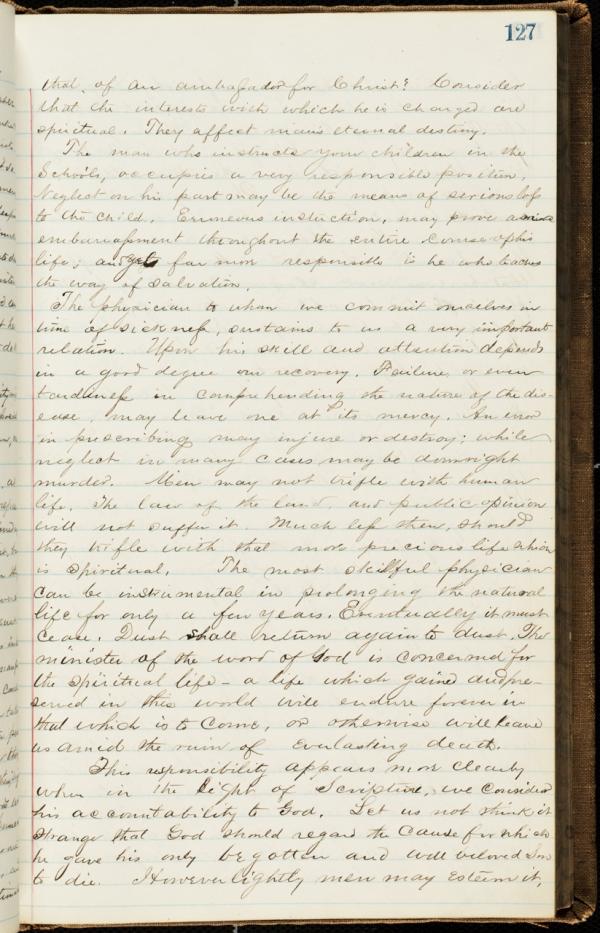 127
that of an ambassador for Christ? Consider
that the interests with which he is charged are
spiritual. They affect man's eternal destiny.
The man who instructs your children in the
Schools, occupies a very responsible position.
Neglect on his part may be the means of serious loss
to the child. Erroneous instruction, may prove a serious
embarrassment throughout the entire course of his
life; and yet far more responsible is he who teaches
the way of salvation.
The physician to whom we commit ourselves in
time of sickness, sustains to us a very important
relation. Upon his skill and attention depends
in a good degree our recovery. Failure, or even
tardiness in comprehending the nature of the dis-
ease, may leave one at its mercy. An error
in prescribing may injure or destroy; while
neglect in many cases may be downright
murder. Men may not trifle with human
life. The law of the land, and public opinion
will not suffer it. Much less then, should
they trifle with that more precious life which
is spiritual. The most skillful physician
can be instrumental in prolonging the natural
life for only a few years. Eventually it must
cease. Dust shall return again to dust. The
minister of the word of God is concerned for
the spiritual life - a life which gained and pre-
served in this world will endure forever in
that which is to come, or otherwise will leave
us amid the ruin of everlasting death.
This responsibility appears more clearly
when in the light of Scripture, we consider
his accountability to God. Let us not think it
strange that God should regard the cause for which
he gave his only begotten and well beloved Son
to die. However lightly men may esteem it,